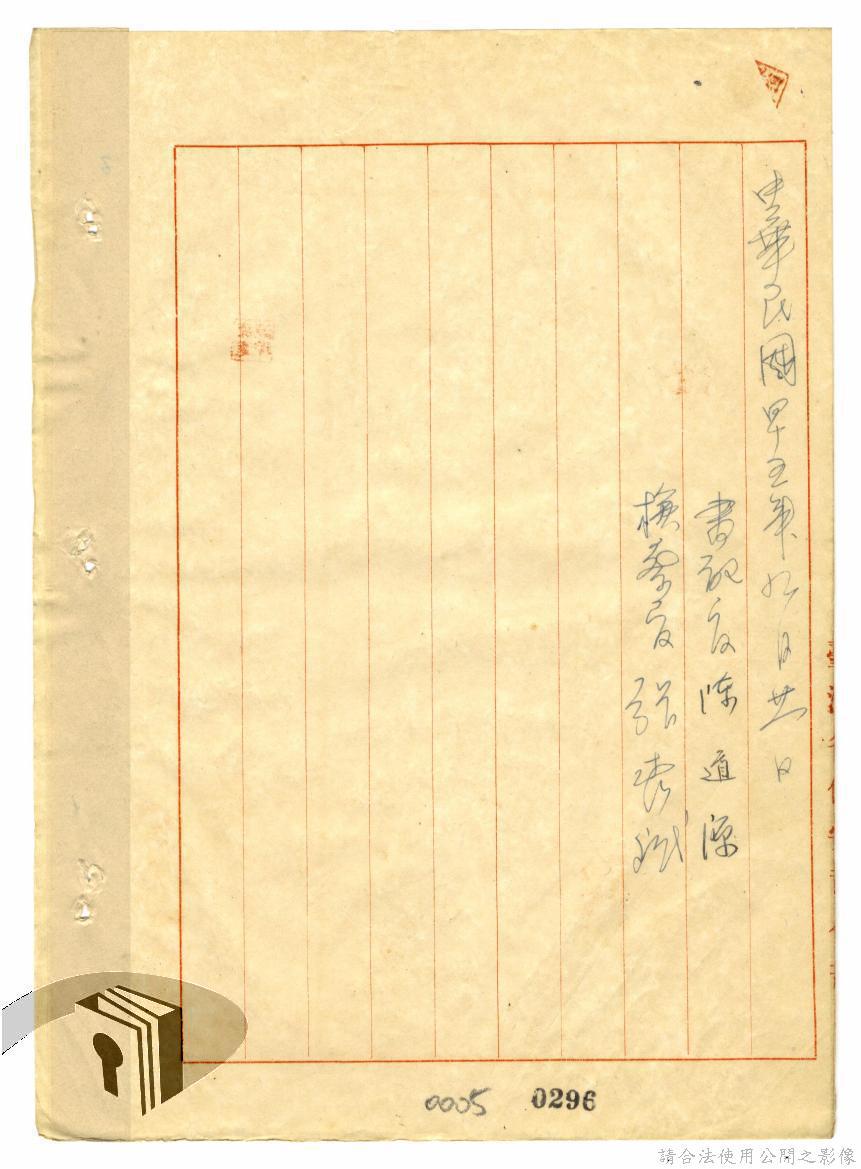 中華民國四十五年九月廿一日
書記官陳道源
檢察官張
0005 0296
請合法使用公開之影像